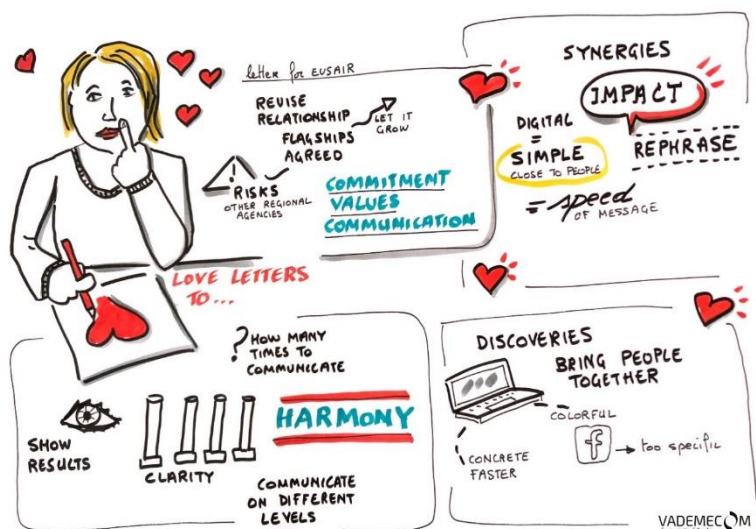 letter for EUSAIR
REVISE
RELATIONSHIP
LET IT
GROW
FLAGSHIPS
AGREED
!
RISKS
OTHER REGIONAL
AGENCIES
COMMITMENT
VALUES
COMMUNICATION
LOVE LETTERS
TO...
SYNERGIES
IMPACT
DIGITAL
=
SIMPLE
CLOSE TO PEOPLE
REPHRASE
= speed
OF MESSAGE
? HOW MANY
TIMES TO
COMMUNICATE
SHOW
RESULTS
CLARITY
HARMONY
COMMUNICATE
ON DIFFERENT
LEVELS
DISCOVERIES
BRING PEOPLE
TOGETHER
COLORFUL
CONCRETE
FASTER
f → too specific
VADEMECOM